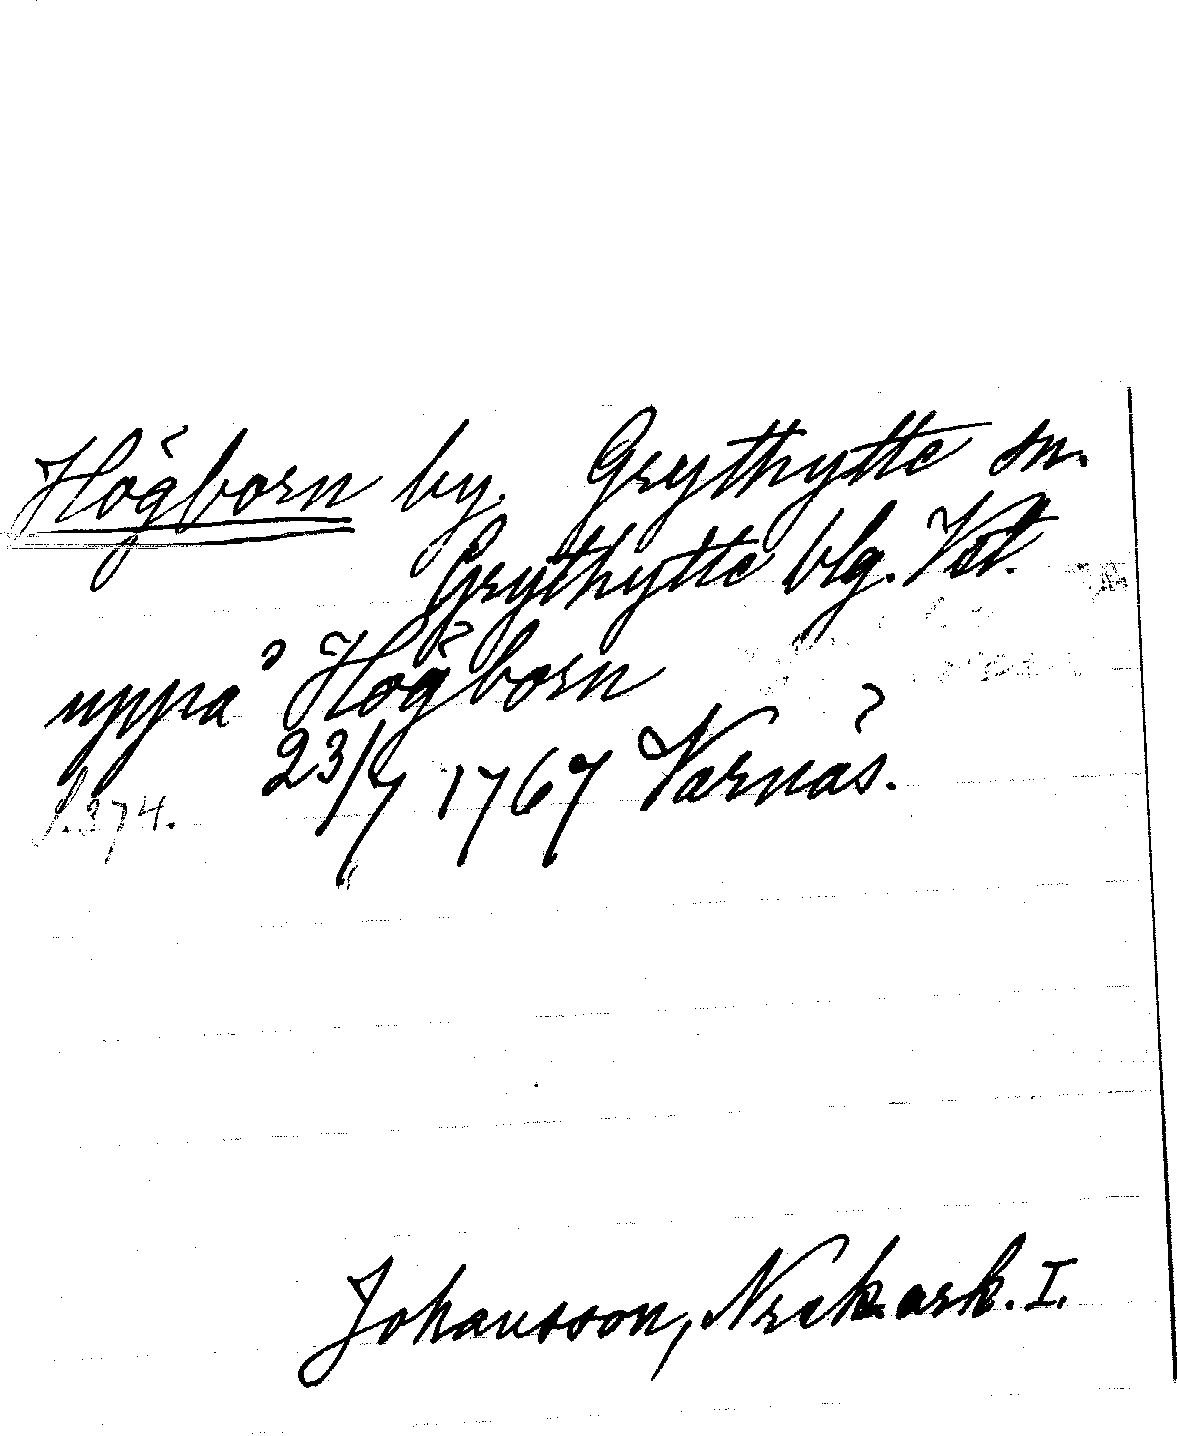 Högborn by. Grythytte sn.
Grythytte blg. Vstl.
uppå Högborn
23/7 1767 Varnäs.
s. 374.
Johansson, Noraskog. ark. I.